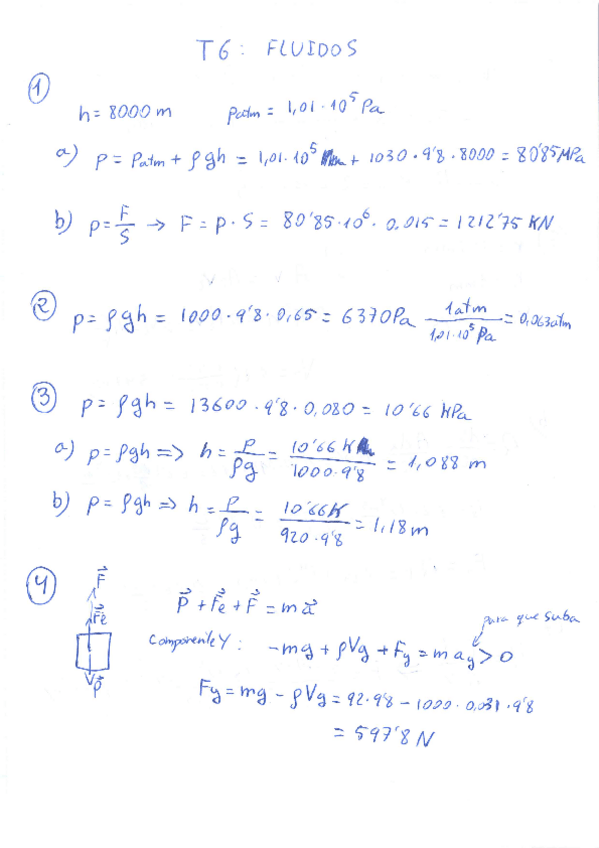 T6: FLUIDOS
①
h = 8000 m   Patm = 1,01·10⁵ Pa
a) p = Patm + ρgh = 1,01·10⁵ + 1030·9'8·8000 = 80'85 MPa
b) p = F/S → F = p·S = 80'85·10⁶·0,015 = 1212'75 KN
② p = ρgh = 1000·9'8·0,65 = 6370 Pa 1 atm / 1,01·10⁵ Pa = 0,063 atm
③ p = ρgh = 13600·9'8·0,080 = 10'66 KPa
a) p = ρgh => h = p/ρg = 10'66 K / 1000·9'8 = 1,088 m
b) p = ρgh => h = p/ρg = 10'66K / 920·9'8 = 1,18 m
④
F⃗
F⃗e
P⃗
P⃗ + F⃗e + F⃗ = m a⃗
para que suba
Componente Y: -mg + ρVg + Fy = m ay > 0
Fy = mg - ρVg = 92·9'8 - 1000·0,031·9'8
= 597'8 N